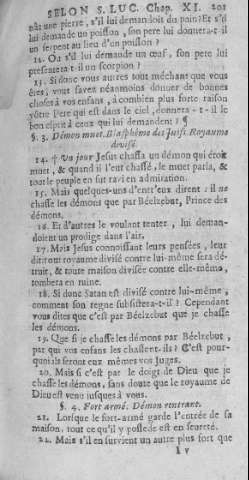 SELON S. LUC. Chap. XI. 201
nât une pierre, s'il lui demandoit du pain? Et s'il
lui demande un poisson, son pere lui donnera-t-il
un serpent au lieu d'un poisson?
12. Ou s'il lui demande un œuf, son pere lui
presentera-t-il un scorpion?
13. Si donc vous autres tout méchans que vous
êtes, vous savez néanmoins donner de bonnes
choses à vos enfans, à combien plus forte raison
vôtre Pere qui est dans le ciel, donnera-t-il le
bon esprit à ceux qui lui demandent? ¶
§. 3. Démon muet. Blasphême des Juifs. Royaume
divisé.
14. † Un jour Jesus chassa un démon qui étoit
muet, & quand il l'eut chassé, le muet parla, &
tout le peuple en fut ravi en admiration.
15. Mais quelques-uns d'entr'eux dirent: il ne
chasse les démons que par Béelzebut, Prince des
démons.
16. Et d'autres le voulant tenter, lui deman-
doient un prodige dans l'air.
17. Mais Jesus connoissant leurs pensées, leur
dit: tout royaume divisé contre lui-même sera dé-
truit, & toute maison divisée contre elle-même,
tombera en ruine.
18. Si donc Satan est divisé contre lui-même,
comment son regne subsistera-t-il? Cependant
vous dites que c'est par Béelzebut que je chasse
les démons.
19. Que si je chasse les démons par Béelzebut,
par qui vos enfans les chassent-ils? C'est pour-
quoi ils seront eux mêmes vos Juges.
20. Mais si c'est par le doigt de Dieu que je
chasse les démons, sans doute que le royaume de
Dieu est venu jusques à vous.
§. 4. Fort armé. Démon rentrant.
21. Lorsque le fort-armé garde l'entrée de sa
maison, tout ce qu'il y possede est en seureté.
22. Mais s'il en survient un autre plus fort que
I v